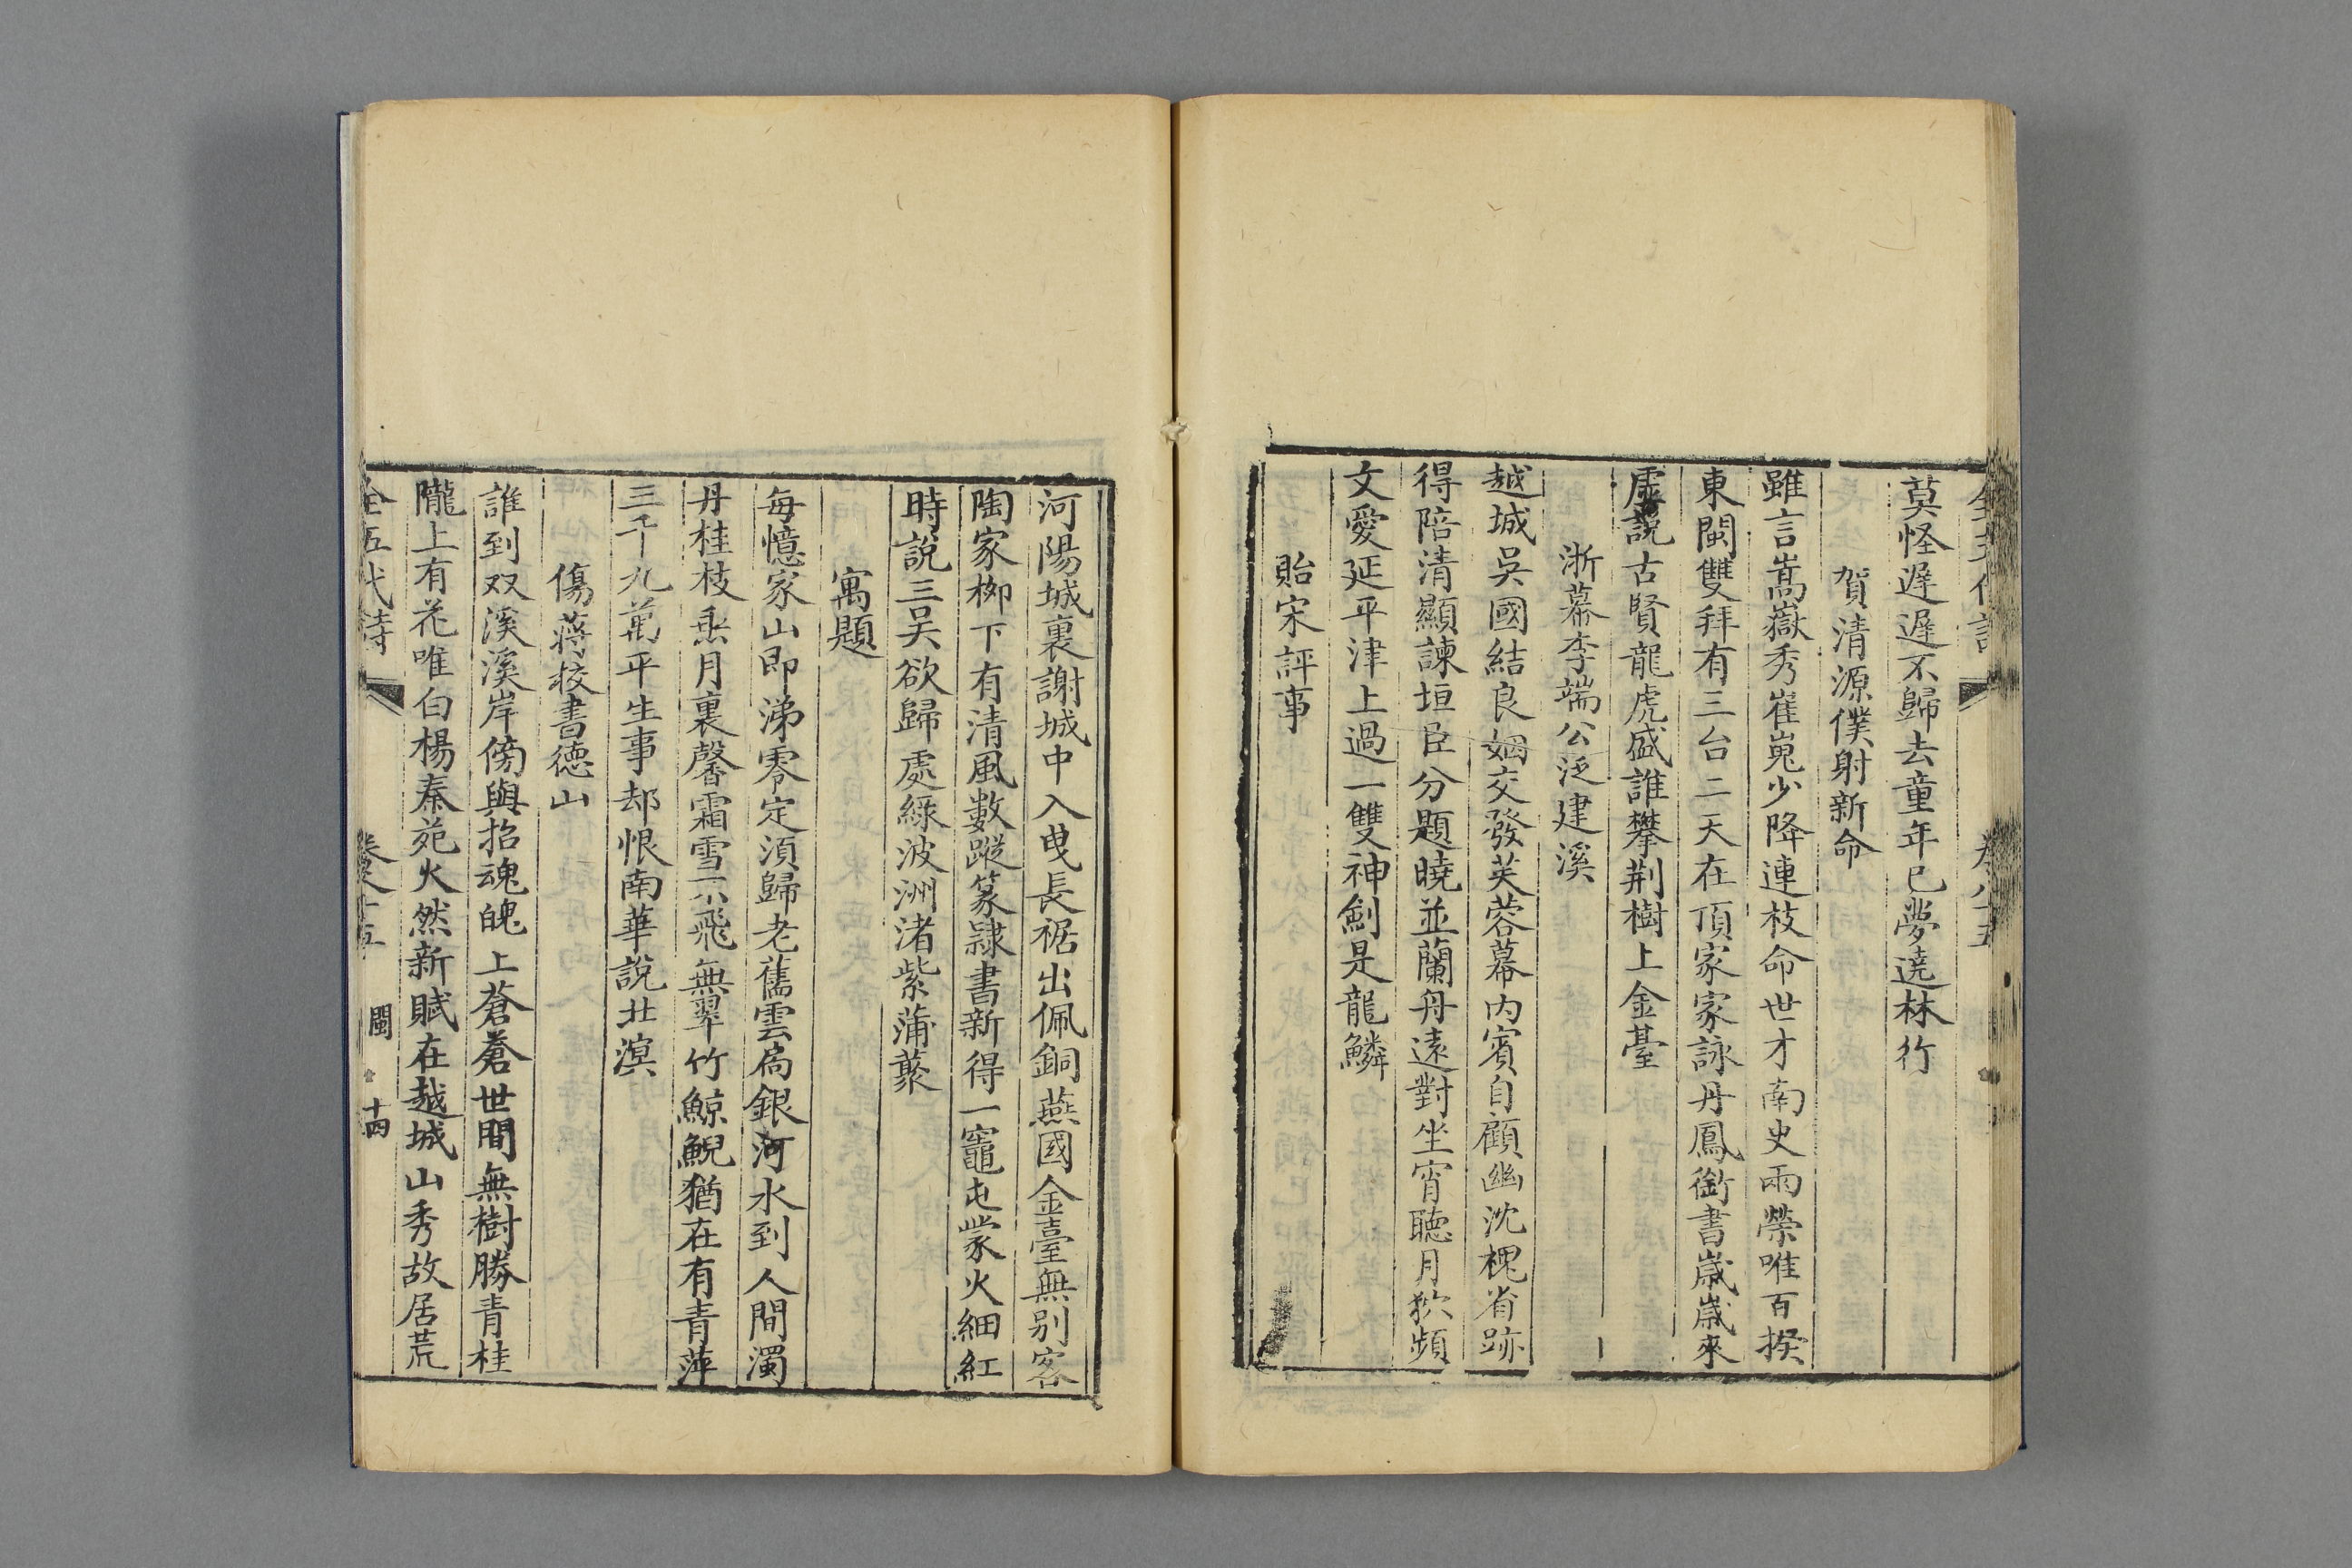 莫怪遲遲不歸去童年已夢遶林行
賀清源僕射新命
雖言嵩嶽秀崔嵬少降連枝命世才南史兩榮唯百揆
東閩雙拜有三台二天在頂家家詠丹鳳銜書歲歲來
虛說古賢龍虎盛誰攀荆樹上金臺
浙幕李端公泛建溪
越城吳國結良姻交發芙蓉幕內賓自顧幽沈槐省跡
得陪清顯諫垣臣分題曉並蘭舟遠對坐宵聽月狖頻
文愛延平津上過一雙神劍是龍鱗
貽宋評事
河陽城裏謝城中入曳長裾出佩銅燕國金臺無别客
陶家栁下有清風數蹤篆隷書新得一竈屯蒙火細紅
時說三吴欲歸處綠波洲渚紫蒲藂
寓題
每憶家山即涕零定須歸老舊雲扃銀河水到人間濁
丹桂枝垂月裏馨霜雪不飛無翠竹鯨鯢猶在有青萍
三千九萬平生事却恨南華說北溟
傷蔣校書德山
誰到双溪溪岸傍與招魂魄上蒼蒼世間無樹勝青桂
隴上有花唯白楊秦苑火然新賦在越城山秀故居荒
全五代詩 卷八十五 閩 十四